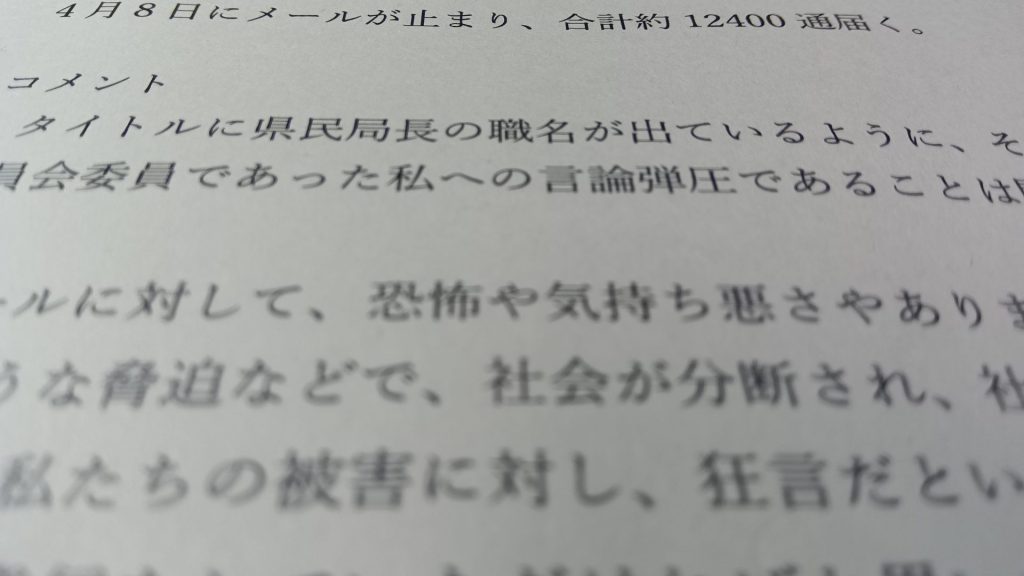 ４月８日にメールが止まり、合計約 12400 通届く。
コメント
タイトルに県民局長の職名が出ているように、そ
員会委員であった私への言論弾圧であることは
ールに対して、恐怖や気持ち悪さやありま
うな脅迫などで、社会が分断され、社
私たちの被害に対し、狂言だとい